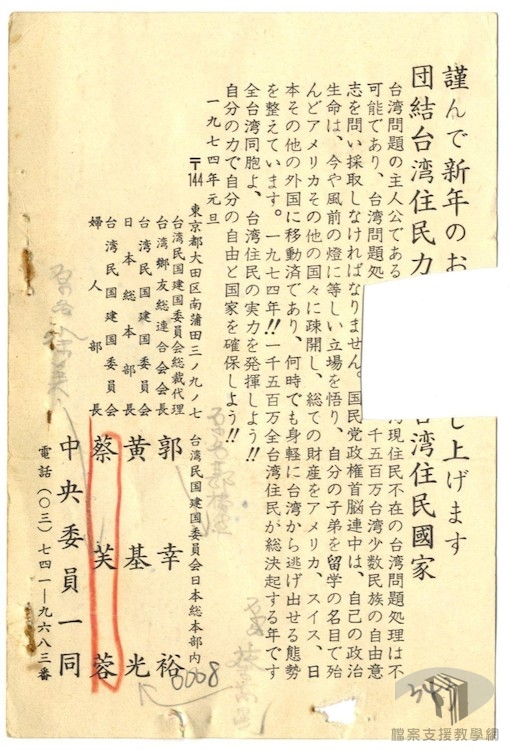 謹んで新年のお
し上げます
団結台湾住民力
台湾住民國家
台湾問題の主人公である
湾現住民不在の台湾問題処理は不
可能であり、台湾問題処
千五百万台湾少数民族の自由意
志を問い採取しなければなりません。国民党政権首脳連中は、自己の政治
生命は、今や風前の燈に等しい立場を悟り、自分の子弟を留学の名目で殆
んどアメリカその他の国々に疎開し、総ての財産をアメリカ、スイス、日
本その他の外国に移動済であり、何時でも身軽に台湾から逃げ出せる態勢
を整えています。一九七四年!!一千五百万全台湾住民が総決起する年です
全台湾同胞よ、台湾住民の実力を発揮しよう!!
自分の力で自分の自由と国家を確保しよう!!
一九七四年元旦
〒144 東京都大田区南蒲田三ノ九ノ七 台湾民国建国委員会日本総本部内
台湾民国建国委員会総裁代理
台湾郷友総連合会会長 郭幸裕
台湾民国建国委員会
日本総本部長 黄基光
台湾民国建国委員会
婦人部長 蔡芙蓉
中央委員一同
電話(〇三)七四一ー九六八三番
0008
檔案支援教學網